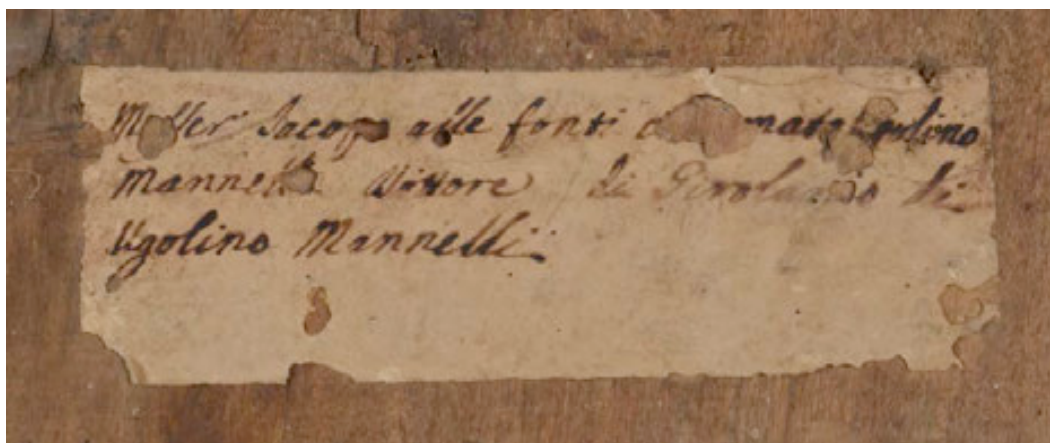 Messer Jacopo alle fonti Ugolino
Mannelli Vittore di Girolamo di
Ugolino Mannelli